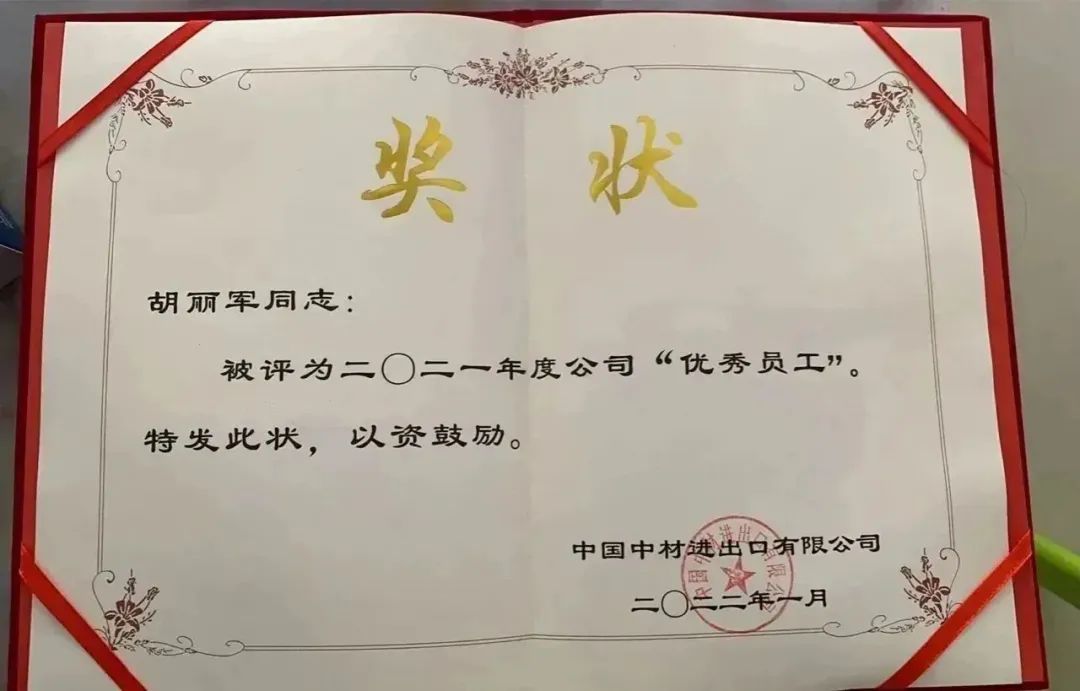 奖状
胡丽军同志：
被评为二〇二一年度公司“优秀员工”。
特发此状，以资鼓励。
中国中材进出口有限公司
二〇二二年一月
中国中材进出口有限公司